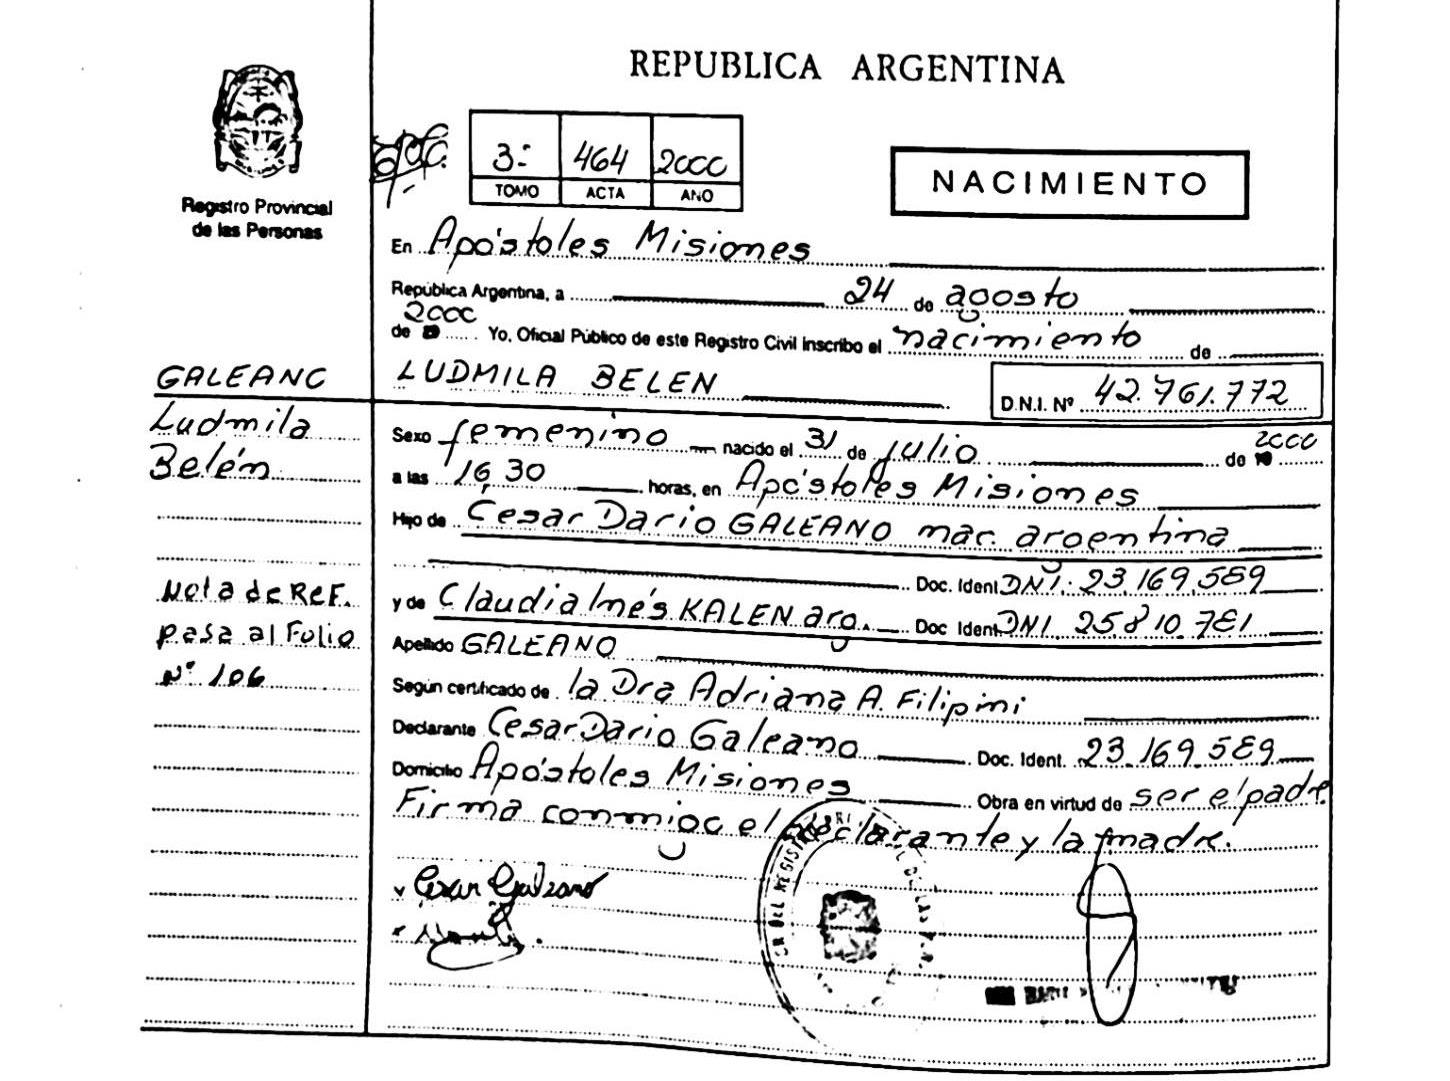 REPUBLICA ARGENTINA
Registro Provincial
de las Personas
3º 464 2000
TOMO ACTA AÑO
NACIMIENTO
En Apóstoles Misiones
República Argentina, a 24 de agosto
de 2000 Yo, Oficial Público de este Registro Civil inscribo el nacimiento de
GALEANO
Ludmila
Belén
Nota de Ref.
pasa al Folio
Nº 106
LUDMILA BELEN D.N.I. Nº 42.761.772
Sexo femenino nacido el 31 de julio de 2000
a las 16,30 horas, en Apóstoles Misiones
Hijo de Cesar Dario GALEANO nac. argentina
Doc. Ident DNI. 23.169.589
y de Claudia Inés KALEN arg. Doc Ident. DNI 25.810.781
Apellido GALEANO
Según certificado de la Dra Adriana A. Filipini
Declarante Cesar Dario Galeano Doc. Ident. 23.169.589
Domicilio Apóstoles Misiones Obra en virtud de ser el padre
Firma conmigo el declarante y la madre.
Cesar Galeano